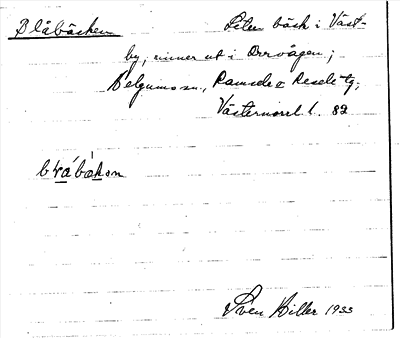 Blåbäcken Liten bäck i Väst-
by, rinner ut i Orrvägen;
Helgums sn., Ramsele o Resele tg.
Västernorrl. l. 82
bråbäkən
Sven Hiller 1933